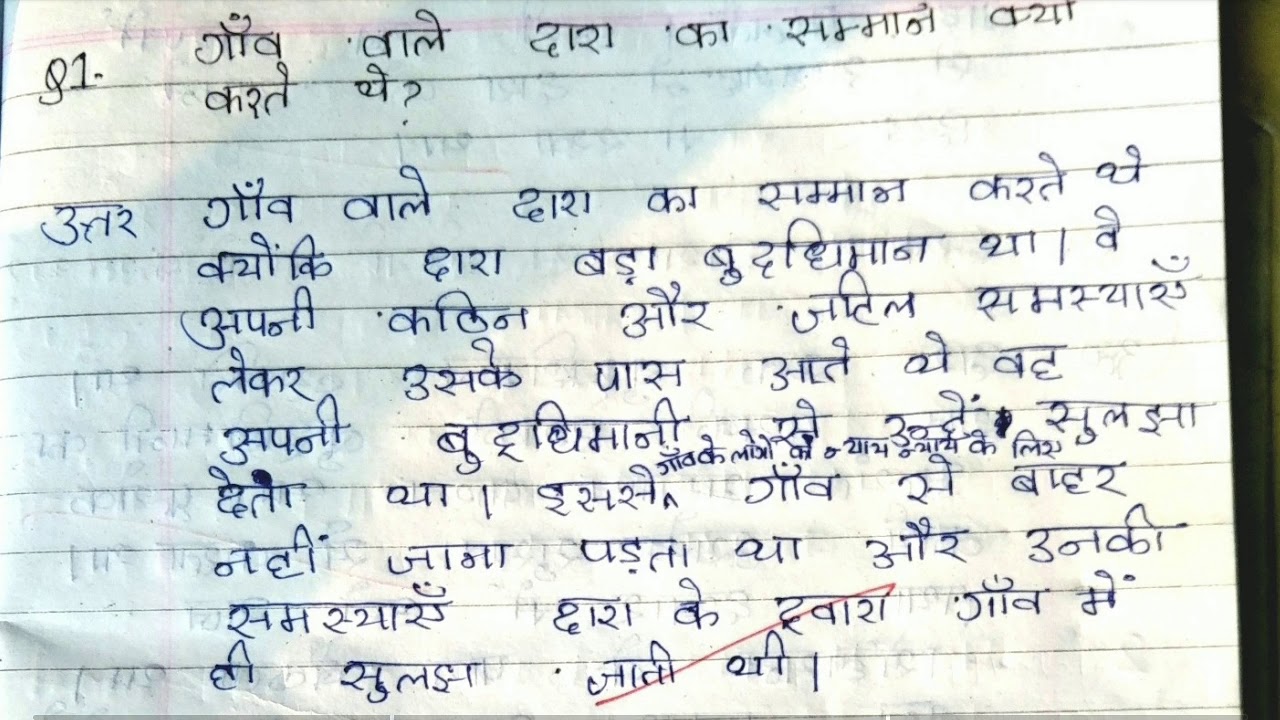 Q1. गाँव वाले दारा का सम्मान क्यों
करते थे?
उत्तर गाँव वाले दारा का सम्मान करते थे
क्योंकि दारा बड़ा बुद्धिमान था। वे
अपनी कठिन और जटिल समस्याएँ
लेकर उसके पास आते थे वह
अपनी बुद्धिमानी से उन्हें सुलझा
गाँव के लोगों को न्याय न्याय के लिए
देता था। इससे गाँव से बाहर
नहीं जाना पड़ता था और उनकी
समस्याएँ दारा के द्वारा गाँव में
ही सुलझा जाती थी।